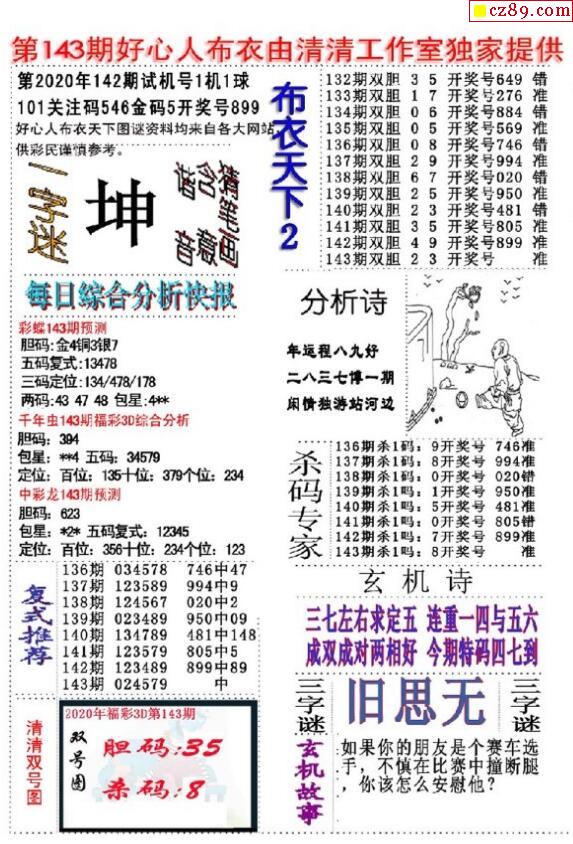 cz89.com
第143期好心人布衣由清清工作室独家提供
第2020年142期试机号1机1球
101关注码546金码5开奖号899
好心人布衣天下图谜资料均来自各大网站,
供彩民谨慎参考。
一字谜
坤
猜谜面
含意
谐音
每日综合分析快报
彩蝶143期预测
胆码:金4铜3银7
五码复式:13478
三码定位:134/478/178
两码:43 47 48 包星:4**
千年虫143期福彩3D综合分析
胆码：394
包星：**4 五码：34579
定位：百位：135十位：379个位：234
中彩龙143期预测
胆码：623
包星：*2* 五码复式：12345
定位：百位：356十位：234个位：123
复式推荐
136期 034578 746中47
137期 123589 994中9
138期 124567 020中2
139期 023489 950中09
140期 134789 481中148
141期 123579 805中5
142期 123489 899中89
143期 024579 中
清清双号图
2020年福彩3D第143期
双号图
胆码:35
杀码:8
布衣天下2
132期双胆 3 5 开奖号649 错
133期双胆 1 7 开奖号276 准
134期双胆 0 6 开奖号884 错
135期双胆 0 5 开奖号569 准
136期双胆 0 8 开奖号746 错
137期双胆 2 9 开奖号994 准
138期双胆 6 7 开奖号020 错
139期双胆 2 5 开奖号950 准
140期双胆 2 3 开奖号481 错
141期双胆 3 5 开奖号805 准
142期双胆 4 9 开奖号899 准
143期双胆 2 3 开奖号 准
分析诗
年远程八九好
二八三七博一期
闲情独游站河边
杀码专家
136期杀1码：9开奖号 746准
137期杀1码：8开奖号 994准
138期杀1码：0开奖号 020错
139期杀1吗：1开奖号 950准
140期杀1吗：5开奖号 481准
141期杀1吗：0开奖号 805错
142期杀1吗：7开奖号 899准
143期杀1吗：8开奖号 准
玄机诗
三七左右求定五 连重一四与五六
成双成对两相好 今期特码四七到
三字谜
旧思无
三字谜
玄机故事
如果你的朋友是个赛车选
手，不慎在比赛中撞断腿
，你该怎么安慰他？